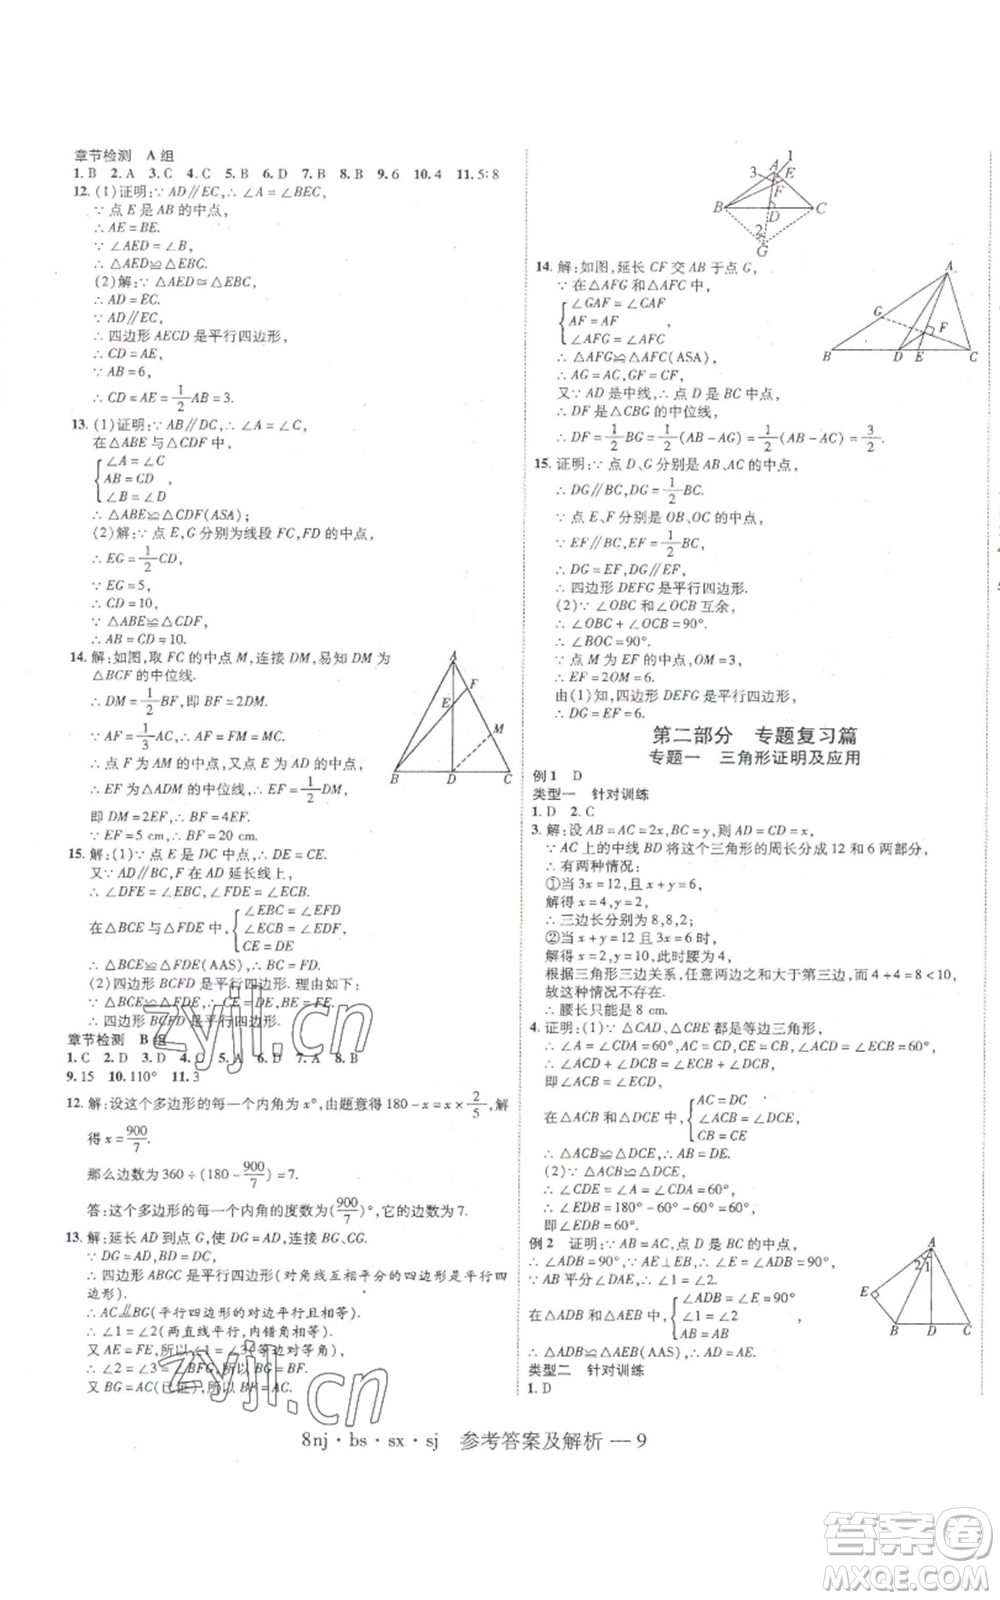 章节检测 A组
1. B 2. A 3. C 4. C 5. B 6. D 7. B 8. B 9. 6 10. 4 11. 5∶8
12. (1)证明:∵AD∥EC,∴∠A=∠BEC,
∵点E是AB的中点,
∴AE=BE.
∵∠AED=∠B,
∴△AED≌△EBC.
(2)解:∵△AED≌△EBC,
∴AD=EC.
∵AD∥EC,
∴四边形AECD是平行四边形,
∴CD=AE,
∵AB=6,
∴CD=AE=1/2AB=3.
13. (1)证明:∵AB∥DC,∴∠A=∠C,
在△ABE与△CDF中,
{∠A=∠C
AB=CD
∠B=∠D
∴△ABE≌△CDF(ASA);
(2)解:∵点E,G分别为线段FC,FD的中点,
∴EG=1/2CD,
∵EG=5,
∴CD=10,
∵△ABE≌△CDF,
∴AB=CD=10.
14. 解:如图,取FC的中点M,连接DM,易知DM为
△BCF的中位线.
∴DM=1/2BF,即BF=2DM.
∵AF=1/3AC,∴点F为AM的中点,
又∵AD是中线,∴点D为BC中点,又点E为AD
的中点,∴EF是△ADM的中位线,∴EF=1/2DM,
即DM=2EF,∴BF=4EF.
∵EF=5 cm,∴BF=20 cm.
15. 解:(1)∵点E是DC中点,∴DE=CE.
又∵AD∥BC,F在AD延长线上,
∴∠DFE=∠EBC,∠EDF=∠ECB.
在△BCE与△FDE中,{∠EBC=∠DFE
∠ECB=∠EDF,
CE=DE
∴△BCE≌△FDE(AAS),∴DF=BC.
(2)四边形BCFD是平行四边形. 理由如下:
∵△BCE≌△FDE,∴CE=DE,BE=FE.
∴四边形BCFD是平行四边形.
章节检测 B组
1. C 2. D 3. D 4. C 5. A 6. D 7. A 8. B
9. 15 10. 110° 11. 3
12. 解:设这个多边形的每一个内角为x°,由题意得180-x=x×2/5,解
得x=900/7.
那么边数为360÷(180-900/7)=7.
答:这个多边形的每一个内角的度数为(900/7)°,它的边数为7.
13. 解:延长AD到点G,使DG=AD,连接BG,CG.
∵DG=AD,BD=DC,
∴四边形ABGC是平行四边形(对角线互相平分的四边形是平行四
边形).
∴AC∥BG(平行四边形的对边平行且相等).
∴∠1=∠2(两直线平行,内错角相等).
又AE=FE,所以∠1=∠3(等边对等角),
∴∠2=∠BFG,所以BF=BG,
又BG=AC(已证),所以BF=AC.
1
3
A
E
F
B
D
C
2
G
14. 解:如图,延长CF交AB于点G,
∵在△AFG和△AFC中,
{∠GAF=∠CAF
AF=AF,
∠AFG=∠AFC
∴△AFG≌△AFC(ASA).
∴AG=AC,GF=CF.
又∵AD是中线,∴点D是BC中点,
∴DF是△CBG的中位线,
∴DF=1/2BG=1/2(AB-AG)=1/2(AB-AC)=3/2.
15. 证明:∵点D、G分别是AB、AC的中点,
∴DG∥BC,DG=1/2BC.
∵点E、F分别是OB、OC的中点,
∴EF∥BC,EF=1/2BC.
∴DG=EF,DG∥EF,
∴四边形DEFG是平行四边形.
(2)∵∠OBC和∠OCB互余,
∴∠OBC+∠OCB=90°,
∴∠BOC=90°.
∵点M为EF的中点,OM=3,
∴EF=2OM=6.
由(1)知,四边形DEFG是平行四边形,
∴DG=EF=6.
第二部分 专题复习篇
专题一 三角形证明及应用
例1 D
类型一 针对训练
1. D 2. C
3. 解:设AB=AC=2x,BC=y,则AD=CD=x,
∵AC上的中线BD将这个三角形的周长分成12和6两部分,
∴有两种情况:
①当3x=12,且x+y=6时,
解得x=4,y=2,
∴三边长分别为8,8,2;
②当x+y=12且3x=6时,
解得x=2,y=10,此时腰为4,
根据三角形三边关系,任意两边之和大于第三边,而4+4=8<10,
故这种情况不存在.
∴腰长只能是8 cm.
4. 证明:(1)∵△CAD、△CBE都是等边三角形,
∴∠A=∠CDA=60°,∠ACD=∠BCE=60°,
∴∠ACD+∠DCB=∠BCE+∠DCB,
即∠ACB=∠ECD,
在△ACB和△DCE中,{AC=DC
∠ACB=∠DCE,
CB=CE
∴△ACB≌△DCE,∴AB=DE.
(2)∵△ACB≌△DCE,
∴∠CDE=∠A=∠CDA=60°,
∴∠EDB=180°-60°-60°=60°,
即∠EDB=60°.
例2 证明:∵AB=AC,点D是BC的中点,
∴∠ADB=90°,∵AE⊥EB,∴∠E=90°,
∵AB平分∠DAE,∴∠1=∠2.
在△ADB和△AEB中,{∠ADB=∠E=90°
∠1=∠2
AB=AB
∴△ADB≌△AEB(AAS),∴AD=AE.
类型二 针对训练
1. D
8nj·bs·sx·sj 参考答案及解析—9
zyjl.cn
zyjl.cn
答案卷
MXQE.COM